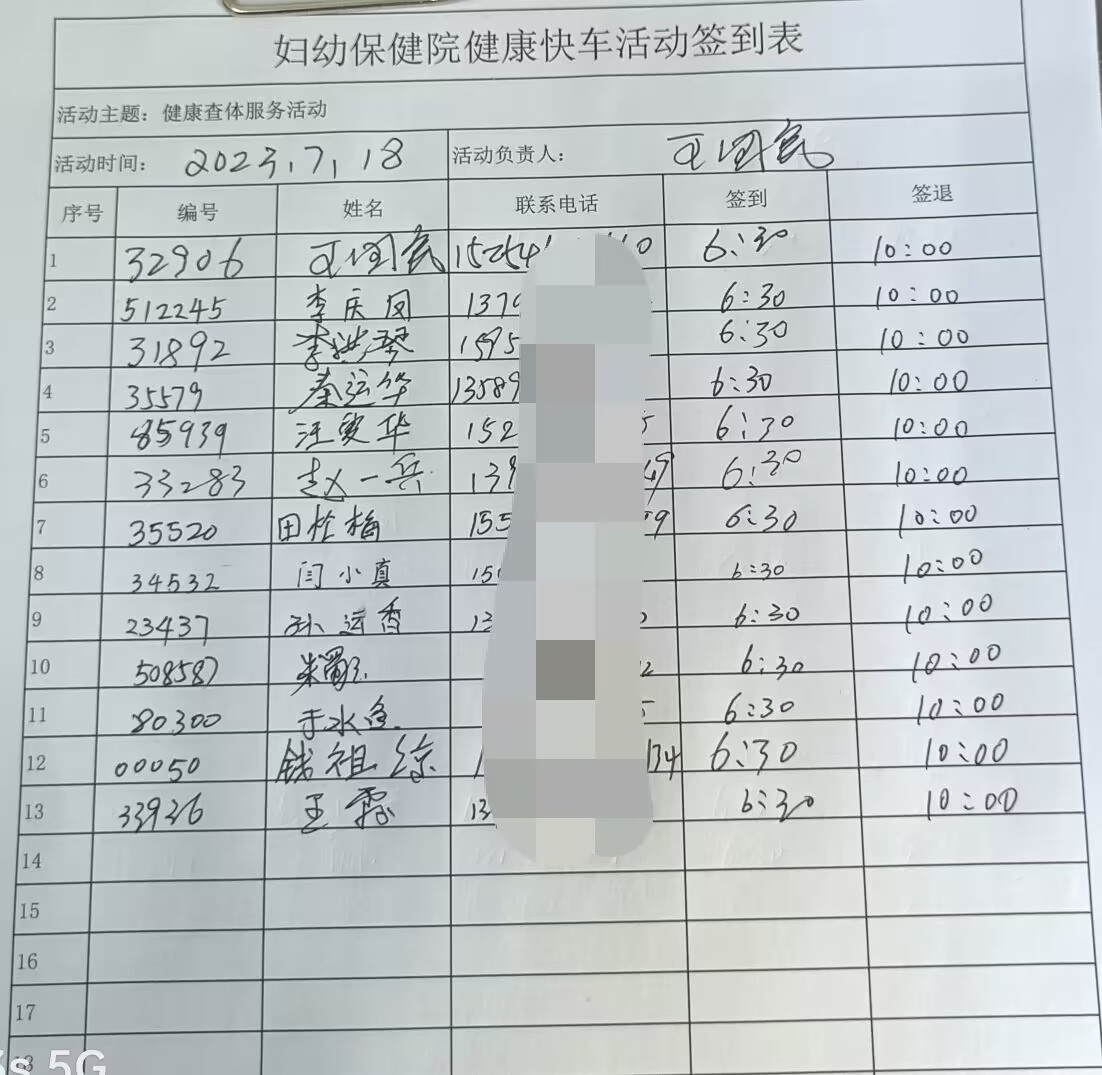 妇幼保健院健康快车活动签到表
活动主题：健康查体服务活动
活动时间： 2023.7.18 活动负责人： 王国民
序号 编号 姓名 联系电话 签到 签退
1 32906 王国民 15254 10 6:30 10:00
2 512245 李庆凤 1379 6:30 10:00
3 31892 李洪琴 1595 6:30 10:00
4 35579 秦运华 13589 6:30 10:00
5 85939 汪爱华 152 5 6:30 10:00
6 33283 赵一兵 139 69 6:30 10:00
7 35520 田桂梅 155 59 6:30 10:00
8 34532 闫小真 15 6:30 10:00
9 23437 孙运香 13 2 6:30 10:00
10 508587 朱 12 6:30 10:00
11 80300 于水 5 6:30 10:00
12 00050 钱祖 1 134 6:30 10:00
13 33936 王霞 13 6:30 10:00
14
15
16
17
5G